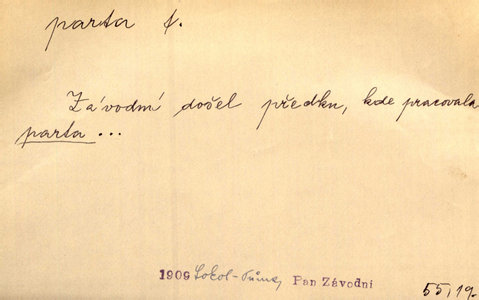 parta f.
Závodní došel předku, kde pracovala
parta ...
1909 Sokol-Tůma, Pan Závodní
55, 19.